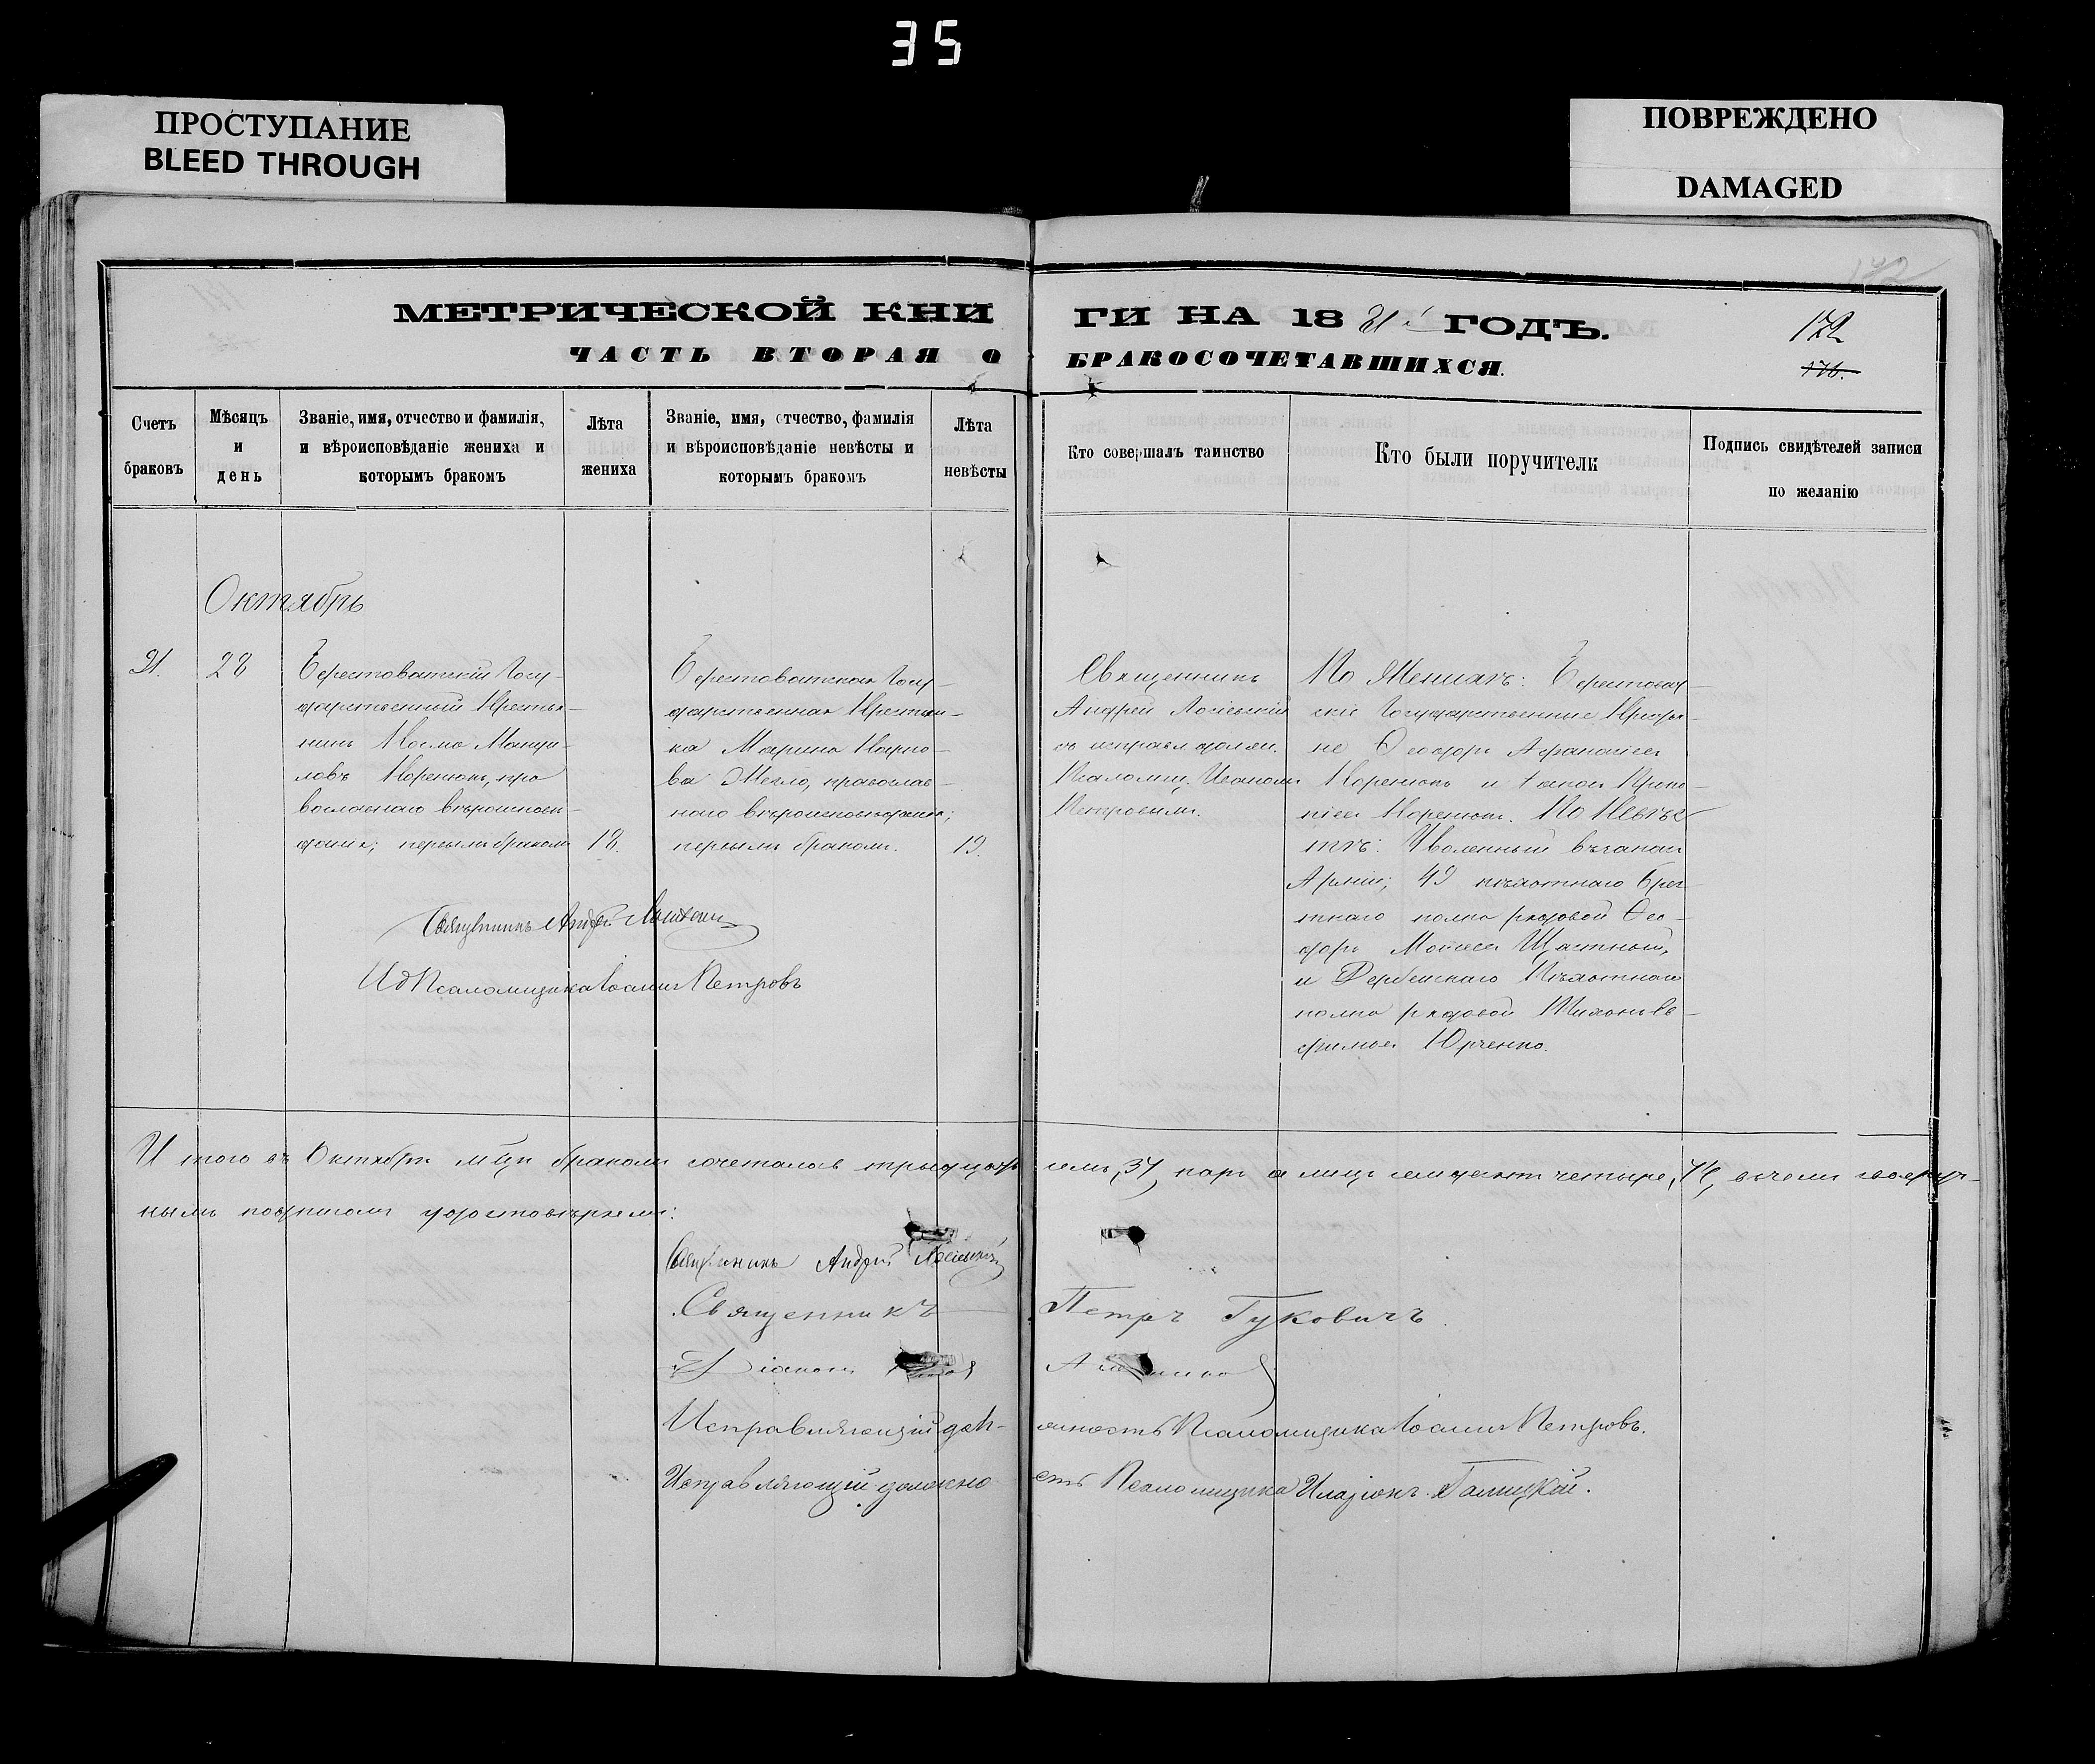 35
ПРОСТУПАНИЕ
BLEED THROUGH
ПОВРЕЖДЕНО
DAMAGED
МЕТРИЧЕСКОЙ КНИ
ГИ НА 1881й ГОДЪ.
172
176.
ЧАСТЬ ВТОРАЯ О
БРАКОСОЧЕТАВШИХСЯ.
Счетъ браковъ
Мѣсяцъ и день
Званіе, имя, отчество и фамилія, и вѣроисповѣданіе жениха и которымъ бракомъ
Лѣта жениха
Званіе, имя, отчество, фамилія и вѣроисповѣданіе невѣсты и которымъ бракомъ
Лѣта невѣсты
Кто совершалъ таинство
Кто были поручители
Подпись свидѣтелей записи по желанію
Октябрь
28
Берестоватскій Госу-
дарственный Крестья-
нинъ Косма
Коренюкъ, пра
вославнаго вѣроисповѣ-
данія; первымъ бракомъ
18.
Берестоватская Госу-
дарственная Крестьян-
ка Марина Карпо-
ва православ-
наго вѣроисповѣданія;
первымъ бракомъ.
19.
Священникъ
Андрей Лосіевскій
съ исправл. должн.
Псаломщ. Іоанномъ
Петровымъ.
По Женихѣ: Берестоват-
скіе Государственные Крестья-
не Ѳеодоръ Аѳанасіевъ
Коренюкъ и
Коренюкъ. По Невѣс
тѣ: Уволенный въ запасъ
Арміи, 49 пѣхотнаго Брес-
тскаго полка рядовой Ѳео-
доръ Моисеевъ Щастный,
и Дербентскаго Пѣхотнаго
полка рядовой
Юрченко.
Священникъ Андрей Лосіевскій
ИД Псаломщика Іоаннъ Петровъ
Итого въ Октябрѣ мцѣ бракомъ сочеталось тридцать
семь, 37, паръ а лицъ семдесятъ четыре, 74, въ чемъ своеруч-
нымъ подписомъ удостовѣряемъ:
Священникъ Андрей Лосіевскій
Священникъ Петръ Гуковичъ.
Діаконъ
Исправляющій дол-
жность Псаломщика Іоаннъ Петровъ.
Исправляющій должно
сть Псаломщика Иларіонъ Галицкій.